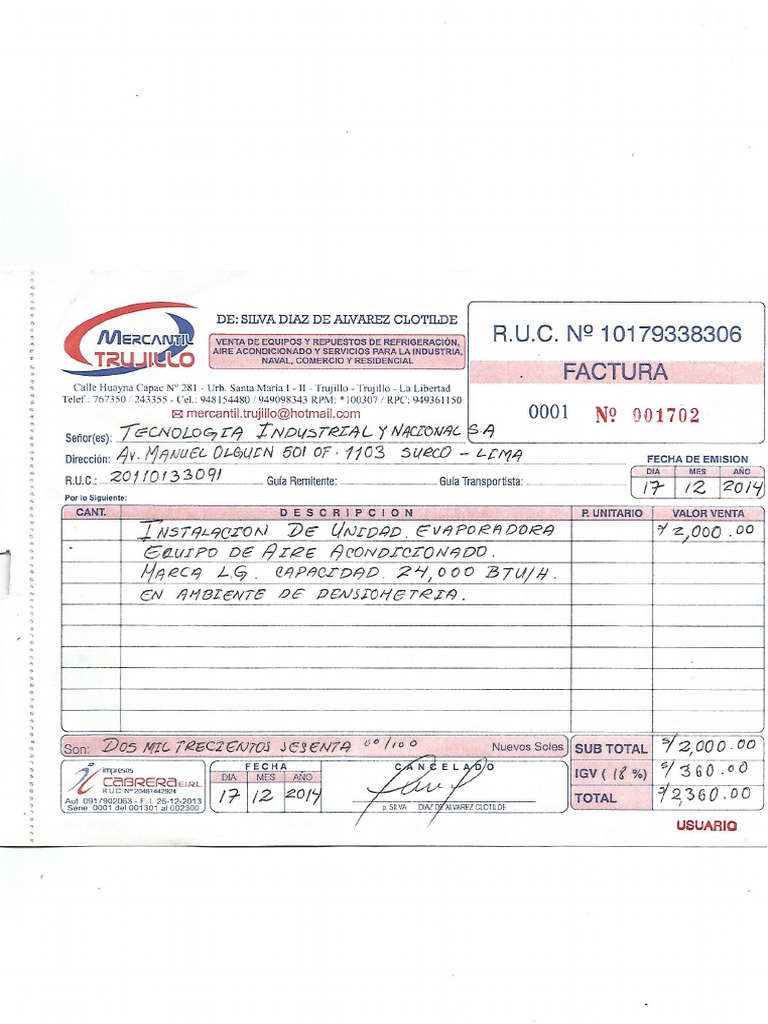 MERCANTIL
TRUJILLO
DE: SILVA DIAZ DE ALVAREZ CLOTILDE
VENTA DE EQUIPOS Y REPUESTOS DE REFRIGERACIÓN,
AIRE ACONDICIONADO Y SERVICIOS PARA LA INDUSTRIA,
NAVAL, COMERCIO Y RESIDENCIAL
Calle Huayna Capac Nº 281 - Urb. Santa María I - II - Trujillo - Trujillo - La Libertad
Telef.: 767350 / 243355 - Cel.: 948154480 / 949098343 RPM: *100307 / RPC: 949361150
mercantil.trujillo@hotmail.com
R.U.C. Nº 10179338306
FACTURA
0001 Nº 001702
Señor(es): TECNOLOGIA INDUSTRIAL Y NACIONAL S.A
Dirección: AV. MANUEL OLGUIN 501 OF. 1103 SURCO - LIMA
R.U.C.: 20110133091 Guía Remitente: Guía Transportista:
FECHA DE EMISION
DIA MES AÑO
17 12 2014
Por lo Siguiente:
CANT. DESCRIPCION P. UNITARIO VALOR VENTA
INSTALACION DE UNIDAD EVAPORADORA S/ 2,000.00
EQUIPO DE AIRE ACONDICIONADO.
MARCA L.G. CAPACIDAD. 24,000 BTU/H.
EN AMBIENTE DE DENSIOMETRIA.
Son: DOS MIL TRECIENTOS SESENTA 00/100 Nuevos Soles
SUB TOTAL S/ 2,000.00
IGV ( 18 %) S/ 360.00
TOTAL S/ 2,360.00
impresos
CABRERA E.I.R.L.
R.U.C. Nº 20481442924
Aut. 0917902063 - F. I. 26-12-2013
Serie 0001 del 001301 al 002300
FECHA
DIA MES AÑO
17 12 2014
CANCELADO
p. SILVA DIAZ DE ALVAREZ CLOTILDE
USUARIO